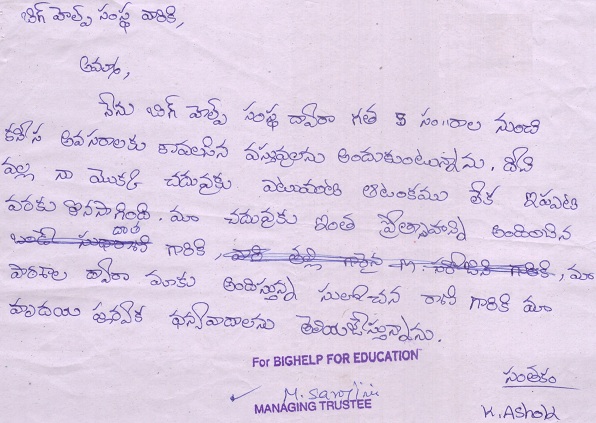 బిగ్ హెల్ప్ సంస్థ వారికి,
అమ్మా,
నేను బిగ్ హెల్ప్ సంస్థ ద్వారా గత 5 సం॥రాల నుంచి
కనీస అవసరాలకు కావలసిన వస్తువులను అందుకుంటున్నాను. దీని
వల్ల నా మొక్క చదువుకు ఎటువంటి ఆటంకము లేక ఇప్పటి
వరకు కొనసాగింది. మా చదువుకు ఇంత ప్రోత్సాహాన్ని అందించిన
దాత
గారికి, మా
పాఠశాల ద్వారా మాకు అందిస్తున్న సులోచన రాణి గారికి మా
హృదయ పూర్వక ధన్యవాదాలను తెలియజేస్తున్నాను.
For BIGHELP FOR EDUCATION
M. Sarojini
MANAGING TRUSTEE
సంతకం
K. Ashok